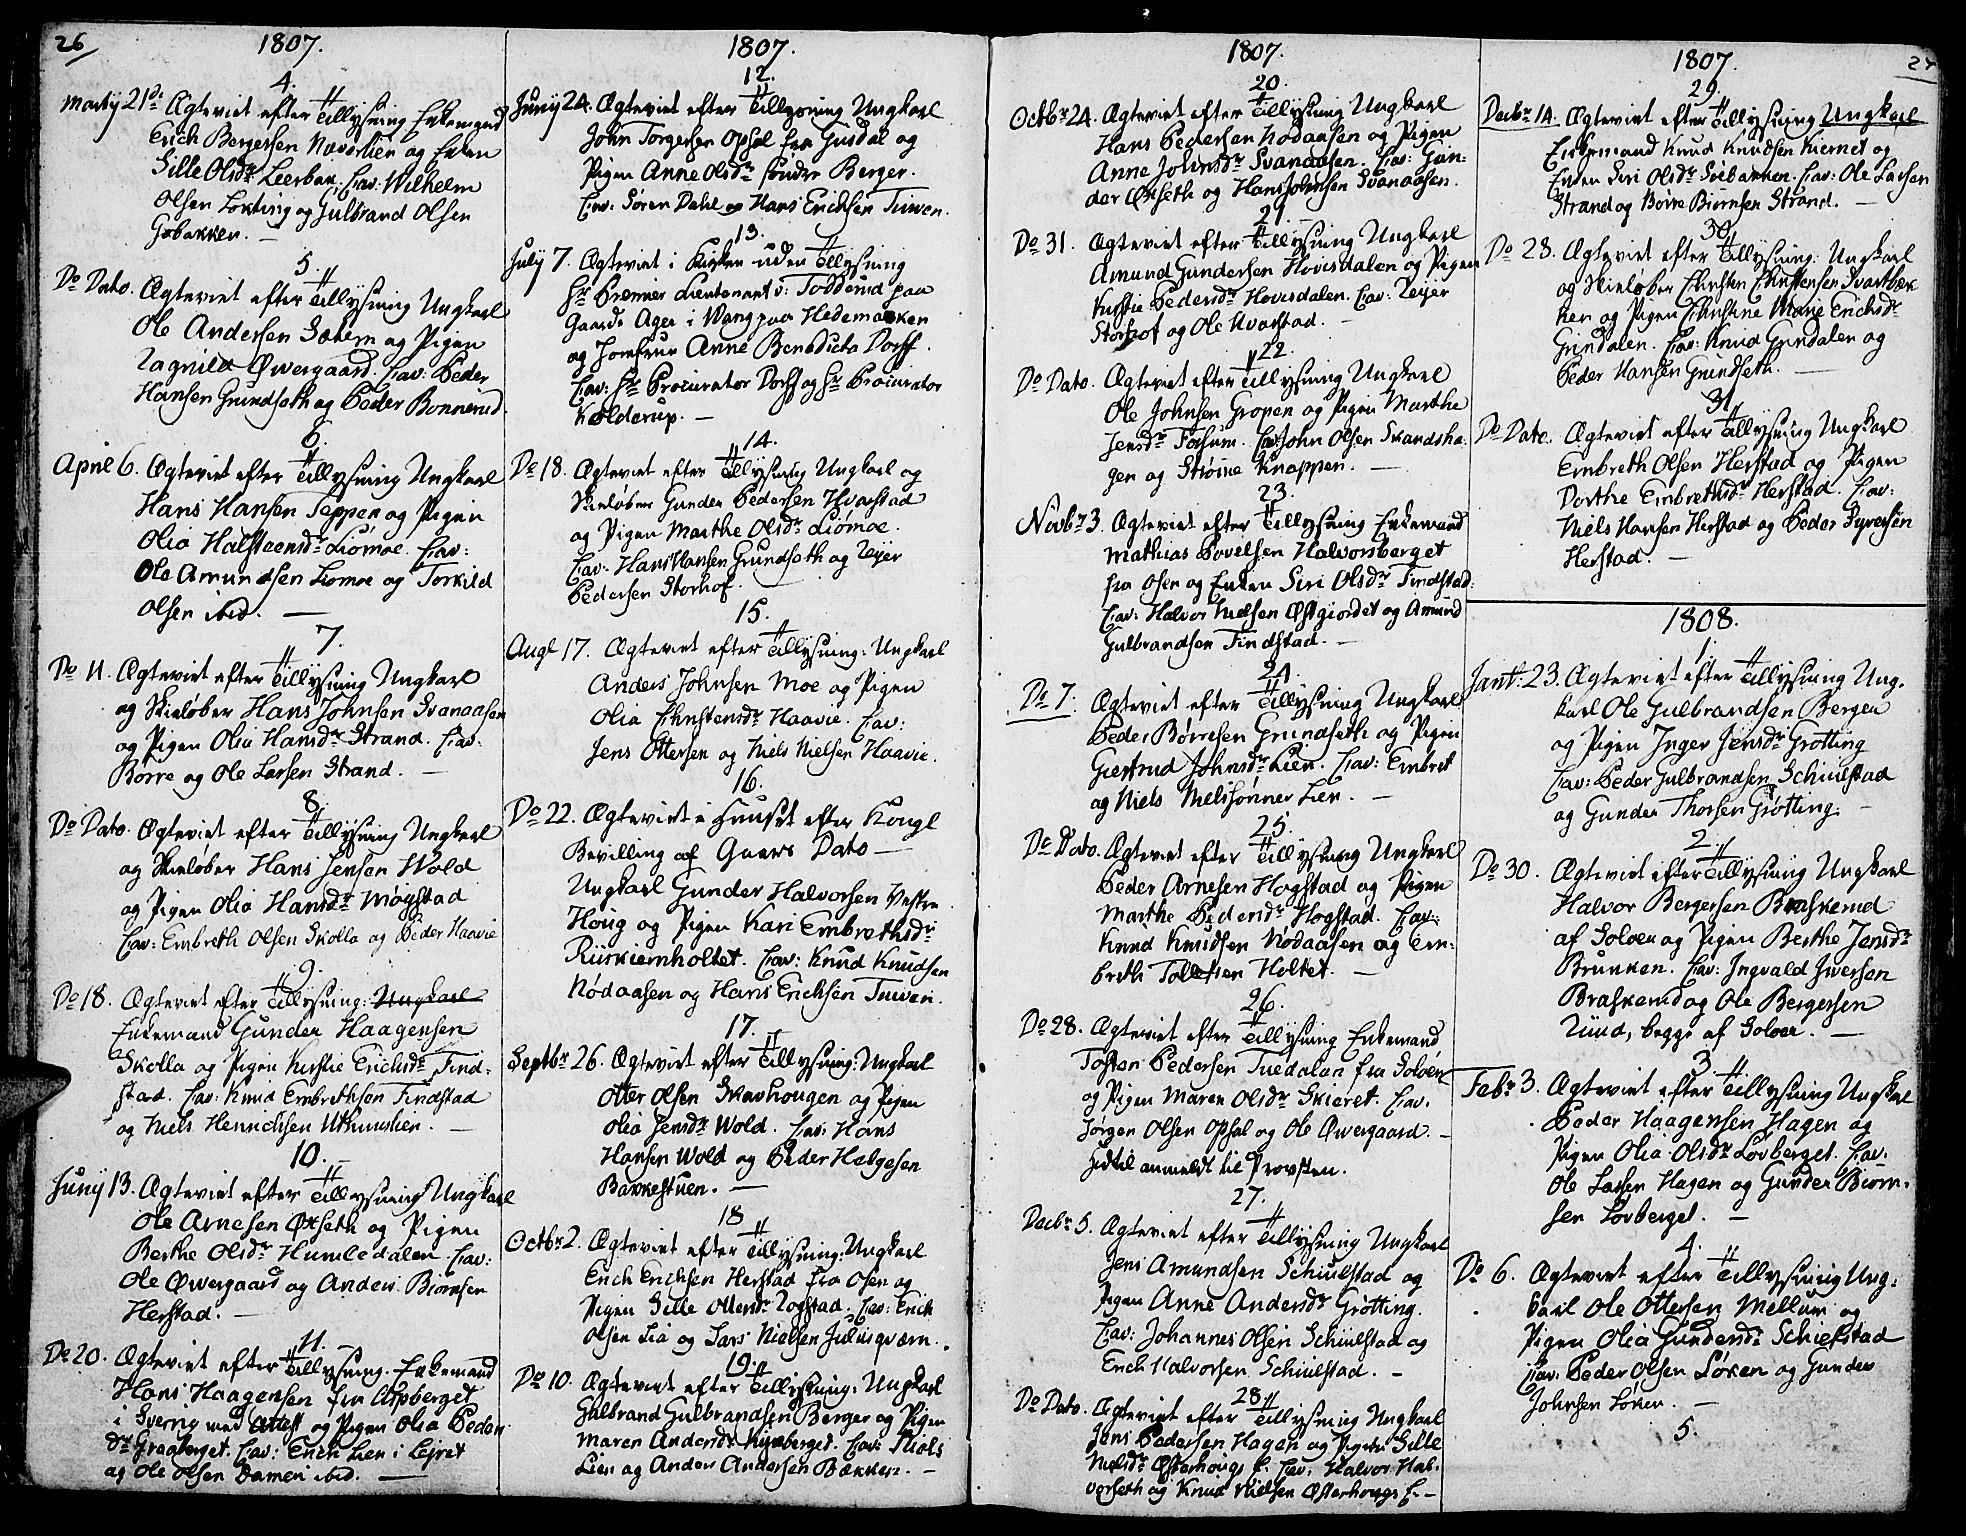 26
1807.
4.
Martij 21de Ægteviet efter Tillysning Enkemand
Erich Bergersen Næverlien og Enken
Sille Olsdr Leerbak. Cav: Wilhelm
Olsen Løkting og Gulbrand Olsen
Gobakken. —
5.
Do Dato. Ægteviet efter Tillysning Ungkarl
Ole Andersen Sætern og Pigen
Ragnild Øwergaard. Cav: Peder
Hansen Grundseth og Peder Bonnerud.
6.
April 6. Ægteviet efter Tillysning Ungkarl
Hans Hansen Teppen og Pigen
Olia Halsteensdr Liømoe. Cav:
Ole Amundsen Liomoe og Torkild
Olsen ibid. —
7.
Do 11. Ægteviet efter Tillysning Ungkarl
og Skieløber Hans Johnsen Svanaasen
og Pigen Olia Hansdr Strand. Cav:
Børre og Ole Larsen Strand. —
8.
Do Dato. Ægteviet efter Tillysning Ungkarl
og Skieløber Hans Jensen Wold
og Pigen Olia Hansdr Møystad
Cav: Embreth Olsen Skolla og Peder Haavie
9.
Do 18. Ægteviet efter Tillysning: Ungkarl
Enkemand Gunder Haagensen
Skolla og Pigen Kirstie Erichsdr Find-
stad. Cav: Knud Embrethsen Findstad
og Niels Henrichsen Uthuuslien. —
10.
Juny 13. Ægteviet efter Tillysning Ungkarl
Ole Arnesen Øxseth og Pigen
Berthe Olsdr Humledalen. Cav:
Ole Øwergaard og Anders Biørnsen
Herstad. —
11.
Do 20. Ægteviet efter Tillysning. Enkemand
Hans Haagensen fra Aspberget
i Sverrig med Attest og Pigen Olia Peder
dr Graaberget. Cav: Erich Lien i Lejret
og Ole Olsen Damen ibid. —
1807.
12.
Juny 24. Ægteviet efter Tillysning Ungkarl
John Torgersen Opsal fra Gusdal og
Pigen Anne Olsdr søndre Berger.
Cav: Sören Dahl og Hans Erichsen Tuven.
13.
July 7. Ægteviet i Kirken uden Tillysning
Hr Premier Lieutenant v: Todderud paa
Gaards Ager i Wang paa Hedemarken
og Jomfrue Anne Benedicta Dorff.
Cav: Hr Procurator Dorff og Hr Procurator
Kolderup. —
14.
Do 18. Ægteviet efter Tillysning Ungkarl og
Skieløber Gunder Pedersen Hvarstad
og Pigen Marthe Olsdr Liömoe.
Cav: Hans Hansen Grundseth og Rejer
Pedersen Storhof.
15.
Augt 17. Ægteviet efter Tillysning: Ungkarl
Anders Johnsen Moe og Pigen
Olia Christensdr Haavie. Cav:
Jens Ottersen og Niels Nielsen Haavie.
16.
Do 22. Ægteviet i Huuset efter Kongl
Bevilling af Dato —
Ungkarl Gunder Halvorsen Vestre
Houg og Pigen Kari Embrethsdr
Rüskiernholtet. Cav: Knud Knudsen
Nødaasen og Hans Erichsen Tuven.
17.
Septbr 26. Ægteviet efter Tillysning: Ungkarl
Otter Olsen Skavhougen og Pigen
Olia Jensdr Wold. Cav: Hans
Hansen Wold og Peder Helgesen
Bakkestuen. —
18
Octbr 2. Ægteviet efter Tillysning: Ungkarl
Erich Erichsen Herstad fra Osen og
Pigen Sille Ottersdr Rogstad. Cav: Erich
Olsen Lia og Lars Nielsen Julusqværn.
19.
Do 10. Ægteviet efter Tillysning: Ungkarl
Gulbrand Gulbrandsen Berger og Pigen
Maren Andersdr Kipeberget. Cav: Niels
Lien og Anders Andersen Bækken. —
1807.
20.
Octbr 24. Ægteviet efter Tillysning Ungkarl
Hans Pedersen Nødaasen og Pigen
Anne Johnsdr Svanaasen. Cav: Gun:
der Øxseth og Hans Johnsen Svanaasen.
21.
Do 31. Ægteviet efter Tillysning Ungkarl
Amund Gundersen Hovisdalen og Pigen
Kirstie Pedersdr Hovisdalen. Cav: Rejer
Storhof og Ole Kvarstad. —
22.
Do Dato. Ægteviet efter Tillysning Ungkarl
Ole Johnsen Gropen og Pigen Marthe
Jensdr Fossum. Cav: John Olsen Skandsha-
gen og Strøme Knappen. —
23.
Novbr 3. Ægteviet efter Tillysning Enkemand
Mathias Povelsen Halvorsberget
fra Osen og Enken Siri Olsdr Findstad.
Cav: Halvor Nielsen Østgiordet og Amund
Gulbrandsen Findstad. —
24.
Do 7. Ægteviet efter Tillysning Ungkarl
Peder Børresen Grundseth og Pigen
Giertrud Johnsdr Lien. Cav: Embret
og Niels Nielssønner Lien. —
25.
Do Dato. Ægteviet efter Tillysning Ungkarl
Peder Arnesen Hogstad og Pigen
Marthe Pedersdr Hogstad. Cav:
Knud Knudsen Nødaasen og Em-
breth Tollefsen Holtet. —
26.
Do 28. Ægteviet efter Tillysning Enkemand
Tosten Pedersen Tuedalen fra Soloer
og Pigen Maren Olsdr Skieret. Cav:
Jørgen Olsen Opsal og Ole Øwergaard. —
hidtil anmeldt til Provsten.
27.
Decbr 5. Ægteviet efter Tillysning Ungkarl
Jens Amundsen Schiulstad og
Pigen Anne Andersdr Grötting.
Cav: Johannes Olsen Schiulstad og
Erich Halvorsen Schiulstad. —
28.
Do Dato. Ægteviet efter Tillysning Ungkarl
Jens Pedersen Hagen og Pigen Sille
Nielsdr Østerhougs E. Cav: Halvor Hal-
vorseth og Knud Nielsen Østerhougs E. —
1807.
27
29.
Decbr 14. Ægteviet efter Tillysning Ungkarl
Enkemand Knud Knudsen Kiernet og
Enken Siri Olsdr Siebakken. Cav: Ole Larsen
Strand og Børre Biørnsen Strand. —
30.
Do 28. Ægteviet efter Tillysning: Ungkarl
og Skieløber Christen Christensen Svartbek
ken og Pigen Christine Marie Erichsdr
Grindalen. Cav: Knud Grindalen og
Peder Hansen Grundseth. —
31.
Do Dato. Ægteviet efter Tillysning Ungkarl
Embreth Olsen Herstad og Pigen
Dorthe Embrethsdr Herstad. Cav:
Niels Hansen Herstad og Peder Syversen
Herstad. —
1808.
1.
Jant: 23. Ægteviet efter Tillysning Ung-
karl Ole Gulbrandsen Bergen
og Pigen Inger Jensdr Grötting
Cav: Peder Gulbrandsen Schiulstad
og Gunder Thorsen Grötting. —
2.
Do 30. Ægteviet efter Tillysning Ungkarl
Halvor Bergersen Braskerud
af Soloer og Pigen Berthe Jensdr
Brunken. Cav: Ingvald Iversen
Braskerud og Ole Bergersen
Ruud, begge af Soloer. —
3.
Febr 3. Ægteviet efter Tillysning Ungkarl
Peder Haagensen Hagen og
Pigen Olia Olsdr Lovberget. Cav:
Ole Larsen Hagen og Gunder Biørn-
sen Lovberget. —
4.
Do 6. Ægteviet efter Tillysning Ung:
karl Ole Ottersen Mellum og
Pigen Olia Gundersdr Schiefstad
Cav: Peder Olsen Løken og Gunder
Johnsen Løken. —
5.